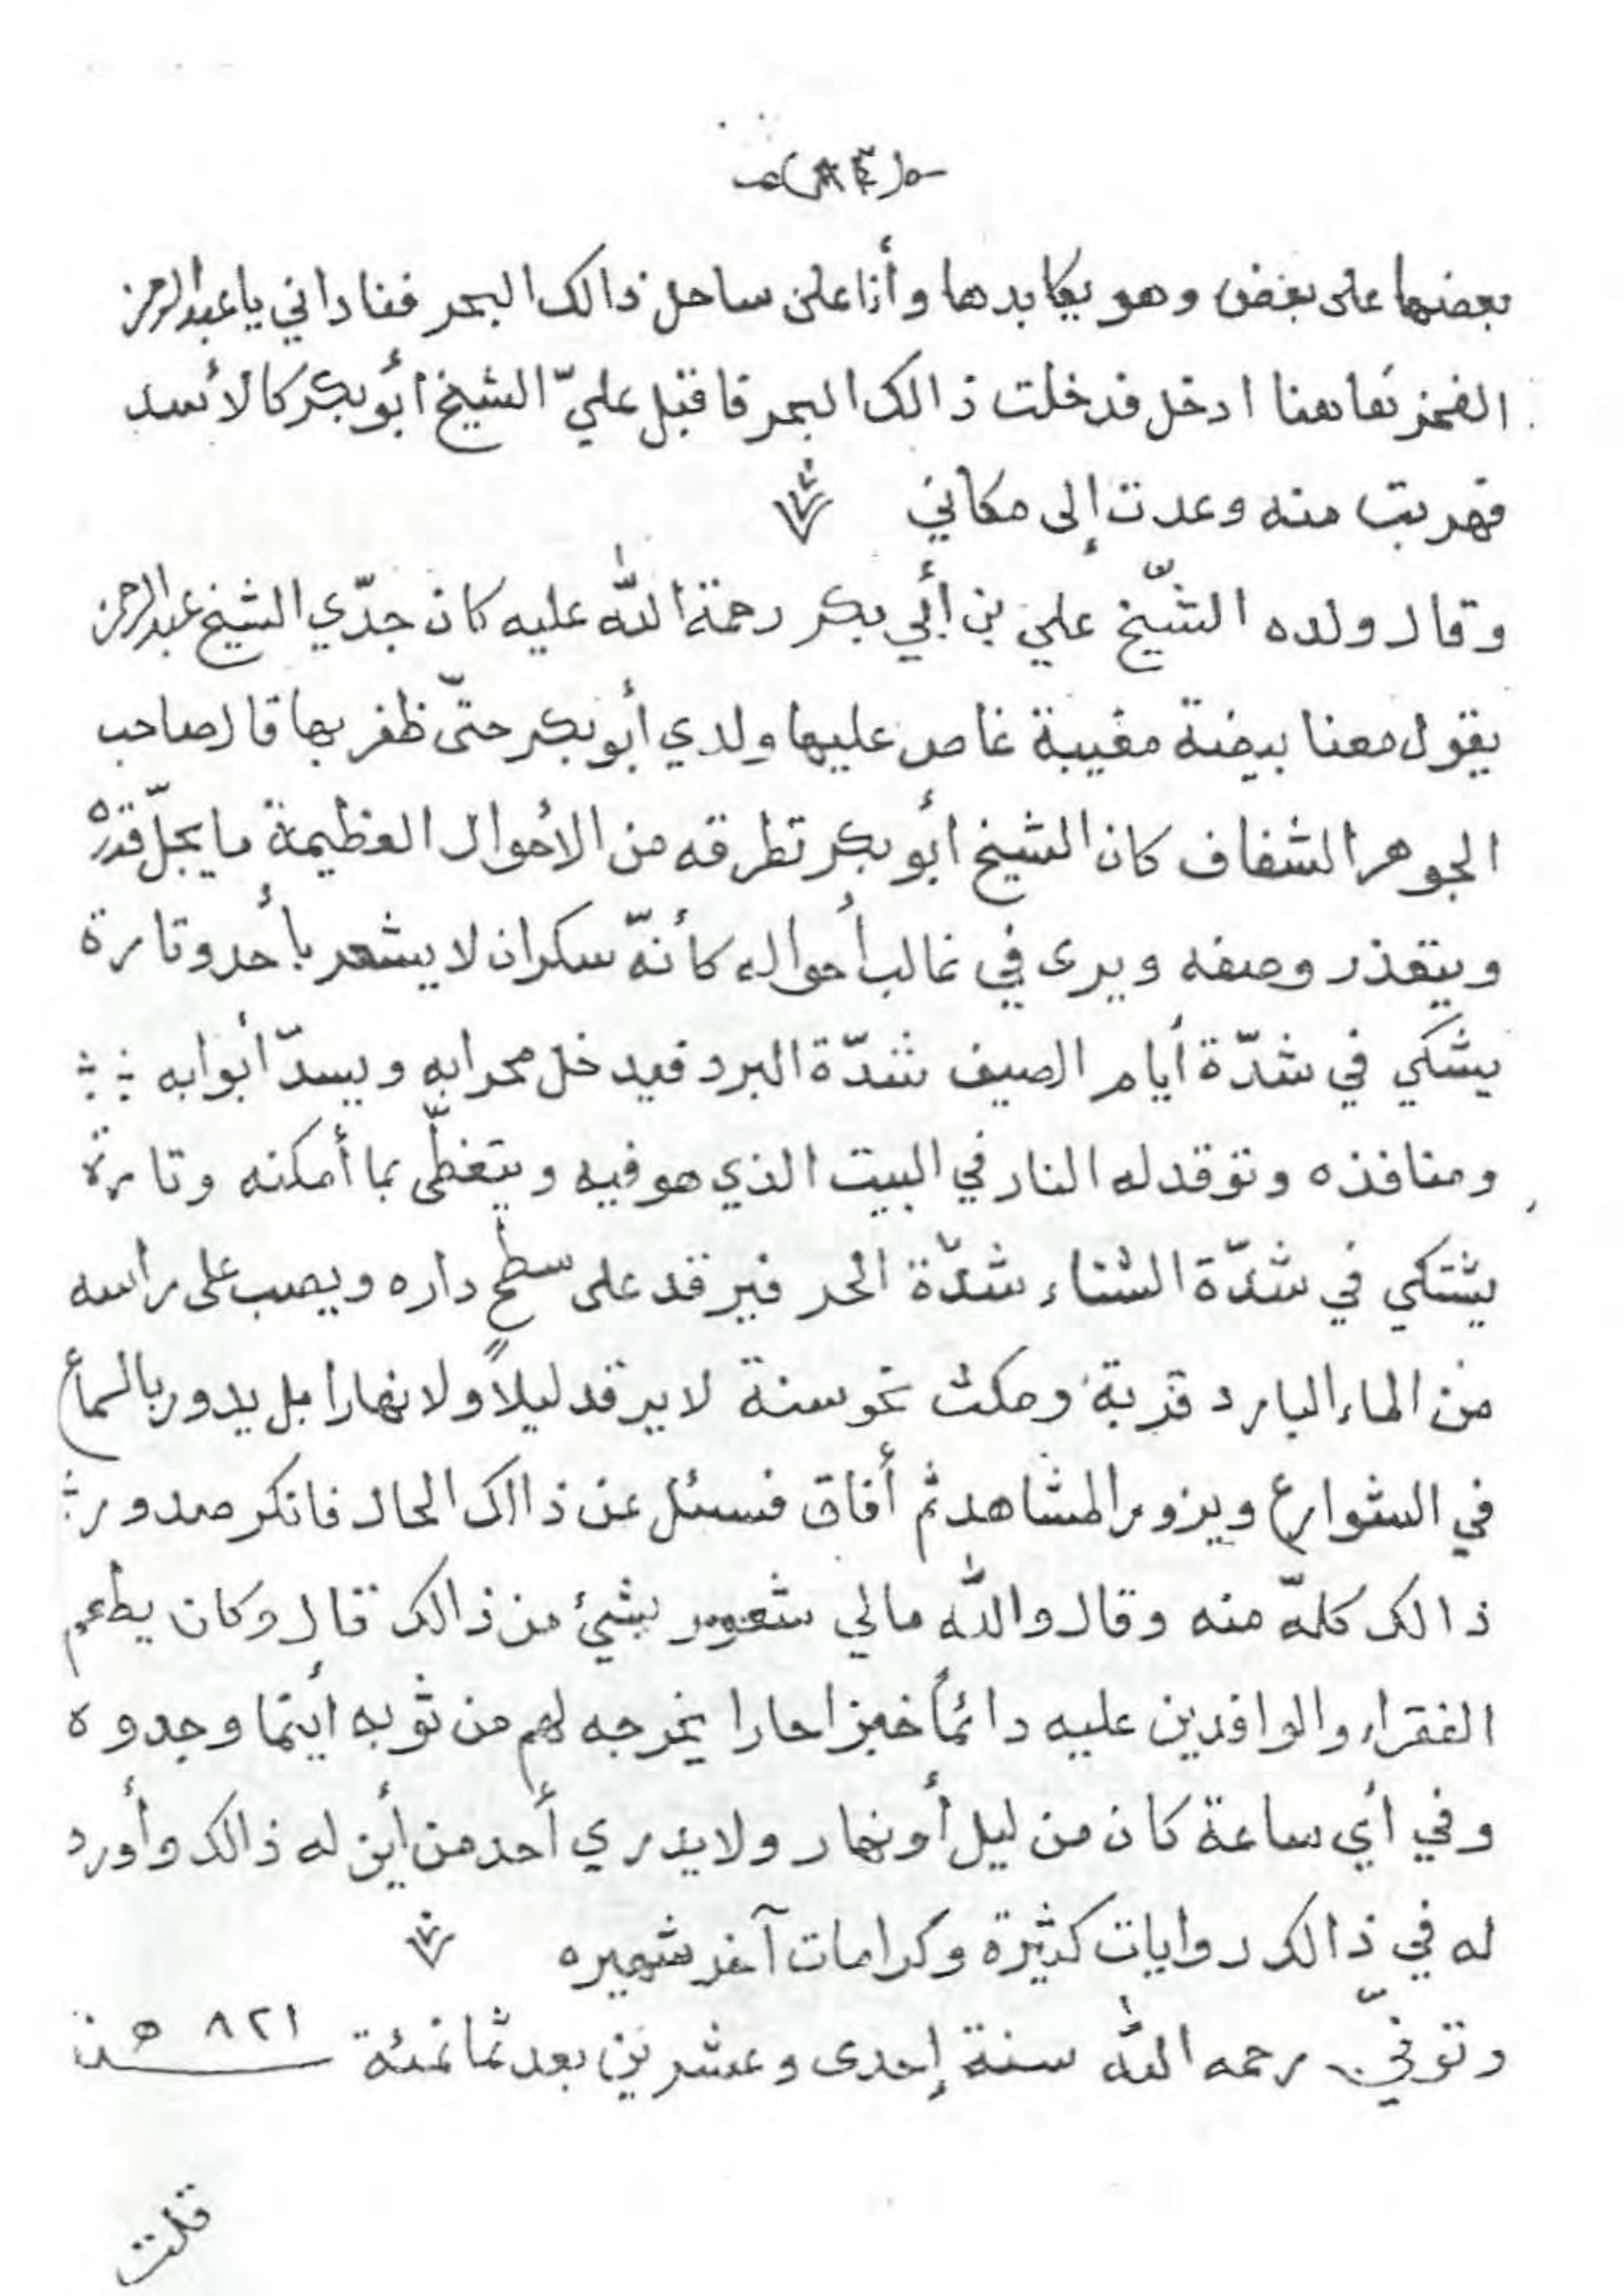 بعضها على بعض وهو يكابدها وأنا على ساحل ذالك البحر فناداني يا عبدالرحمن
تعا هنا ادخل فدخلت ذالك البحر فاقبل عليّ الشيخ أبو بكر كالأسد
فهربت منه وعدت إلى مكاني
وقال ولده الشّيخ علي بن أبي بكر رحمة الله عليه كان جدّي الشيخ عبدالرحمن
يقول معنا بيضة مغيبة غاص عليها ولدي أبو بكر حتّى ظفر بها قال صاحب
الجوهر الشفاف كان الشيخ أبو بكر تطرقه من الأحوال العظيمة ما يجلّ قدره
ويتعذر وصفه ويرى في غالب أحواله كأنّه سكران لا يشعر بأحد وتارة
يشكي في شدّة أيام الصيف شدّة البرد فيدخل محرابه ويسدّ أبوابه
ومنافذه وتوقد له النار في البيت الذي هو فيه ويتغطّى بما أمكنه وتارة
يشتكي في شدّة الشتاء شدّة الحر فيرقد على سطح داره ويصب على راسه
من الماء البارد قربة ومكث نحو سنة لا يرقد ليلاً ولا نهارا بل يدور بالسماع
في الشوارع ويزور المشاهد ثم أفاق فسئل عن ذالك الحال فانكر صدور
ذالك كلّه منه وقال والله مالي شعور بشيئ من ذالك قال وكان يطعم
الفقراء والوافدين عليه دائماً خبزا حارا يخرجه لهم من ثوبه أينما وجدوه
وفي أي ساعة كان من ليل أو نهار ولا يدري أحد من أين له ذالك وأورد
له في ذالك روايات كثيرة وكرامات آخر شهيره
وتوفّي رحمه الله سنة إحدى وعشرين بعد ثمانمئة ٨٢١ هـ
قلت